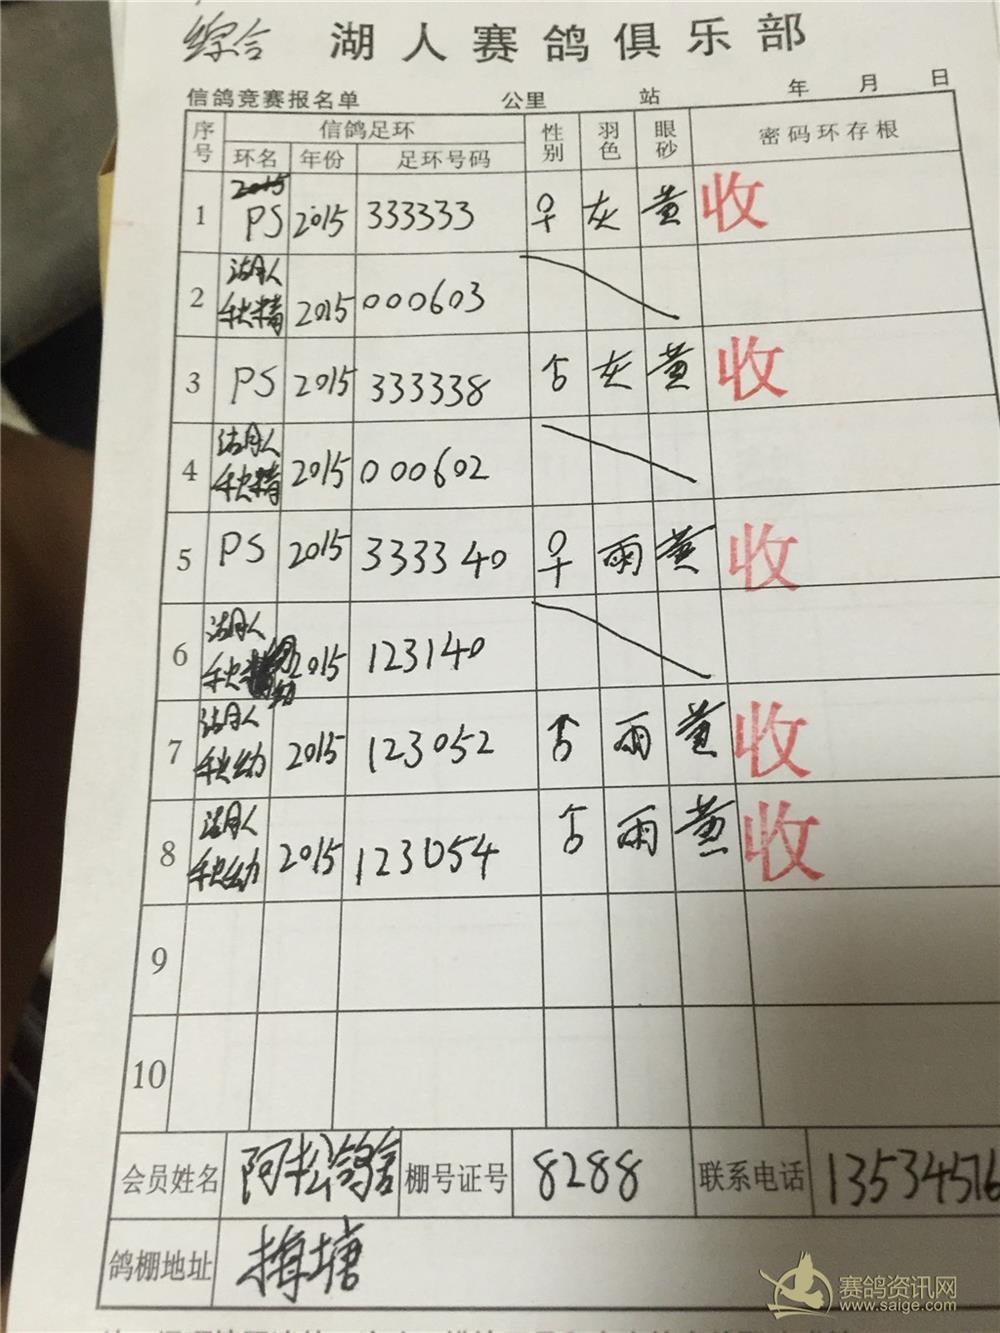 综合 湖人赛鸽俱乐部
信鸽竞赛报名单 公里 站 年 月 日
序号 信鸽足环 性别 羽色 眼砂 密码环存根
环名 年份 足环号码
1 PS 2015 333333 ♀ 灰 黄 收
2 湖人秋精 2015 000603
3 PS 2015 333338 灰 黄 收
4 湖人秋精 2015 000602
5 PS 2015 333340 ♀ 雨 黄 收
6 湖人秋幼 2015 123140
7 湖人秋幼 2015 123052 雨 黄 收
8 湖人秋幼 2015 123054 雨 黄 收
9
10
会员姓名 阿松鸽舍 棚号证号 8288 联系电话 13534576
鸽棚地址 梅塘
赛鸽资讯网
www.saige.com